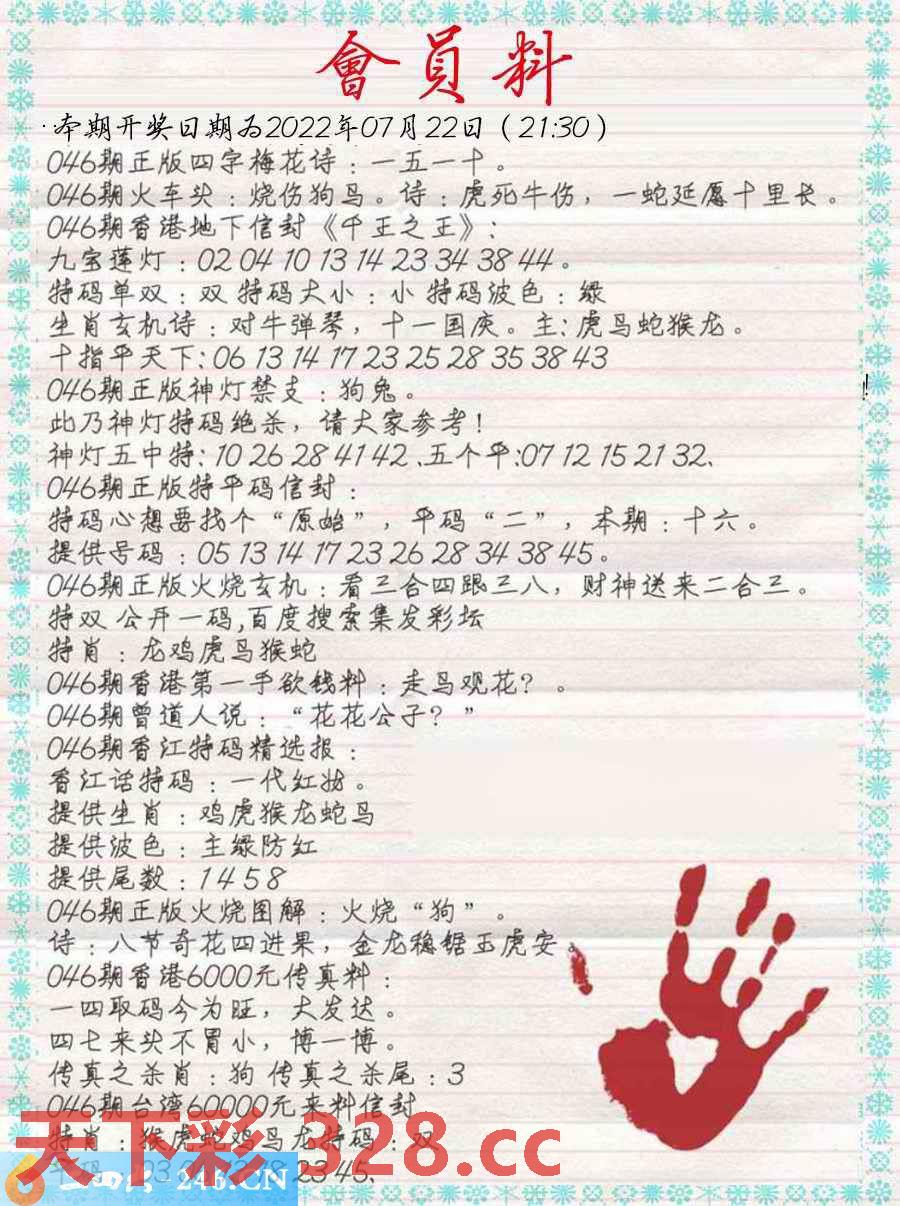 會員料
·本期开奖日期为2022年07月22日（21:30）
046期正版四字梅花诗：一五一十。
046期火车头：烧伤狗鸟。诗：虎死牛伤，一蛇延愿十里长。
046期香港地下信封《千正之正》：
九宝莲灯：02 04 10 13 14 23 34 38 44。
特码单双：双 特码大小：小 特码波色：绿
生肖玄机诗：对牛弹琴，十一国庆。主：虎鸟蛇猴龙。
十指平天下：06 13 14 17 23 25 28 35 38 43
046期正版神灯禁支：狗兔。
!
此乃神灯特码绝杀，请大家参考！
神灯五中特：10 26 28 41 42、五个平:07 12 15 21 32、
046期正版特平码信封：
特码心想要找个“原始”，平码“二”，本期：十六。
提供号码：05 13 14 17 23 26 28 34 38 45。
046期正版火烧玄机：看三合四跟三八，财神送来二合三。
特双 公开一码,百度搜索集发彩坛
特肖：龙鸡虎鸟猴蛇
046期香港第一手欲钱料：走鸟观花？。
046期曾道人说：“花花公子？”
046期香江特码精选报：
香江话特码：一代红妆。
提供生肖：鸡虎猴龙蛇鸟
提供波色：主绿防红
提供尾数：1 4 5 8
046期正版火烧图解：火烧“狗”。
诗：八节奇花四进果，金龙稳锯玉虎安。
046期香港6000元传真料：
一四取码今为旺，大发达。
四七来头不冒小，博一博。
传真之杀肖：狗 传真之杀尾：3
046期台湾60000元来料信封
特肖：猴虎蛇鸡鸟龙特码：双
天下彩 328.cc
23 45、
246.CN